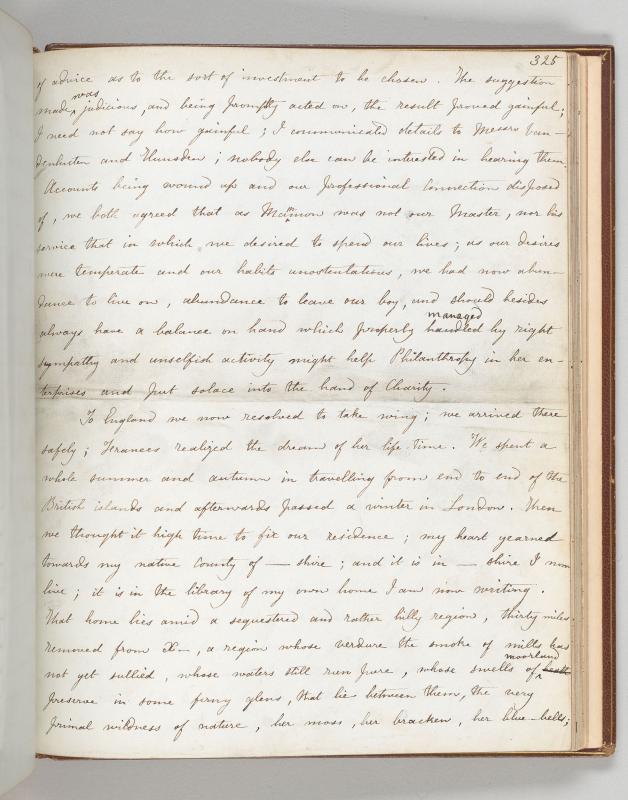 325
of advice as to the sort of investment to be chosen. The suggestion
made, was judicious, and being promptly acted on, the result proved gainful;
I need not say how gainful; I communicated details to Messrs Van—
denhuten and Hunsden; nobody else can be interested in hearing them.
Accounts being wound up and our professional connection disposed
of, we both agreed that as Mammon was not our Master, nor his
service that in which we desired to spend our lives; as our desires
were temperate and our habits unostentatious, we had now abun—
dance to live on, abundance to leave our boy, and should besides
managed
always have a balance on hand which properly handled by right
sympathy and unselfish activity might help Philanthropy in her en—
terprises and put solace into the hand of Charity.
To England we now resolved to take wing; we arrived there
safely; Frances realized the dream of her life-time. We spent a
whole summer and autumn in travelling from end to end of the
British islands and afterwards passed a winter in London. Then
we thought it high time to fix our residence; my heart yearned
towards my native County of — shire; and it is in — shire I now
live; it is in the library of my own home I am now writing.
That home lies amid a sequestered and rather hilly region, thirty miles
removed from X—, a region whose verdure the smoke of mills has
moorland
not yet sullied, whose waters still run pure, whose swells of heath
preserve in some ferny glens, that lie between them, the very
primal wildness of nature, her moss, her bracken, her blue-bells;